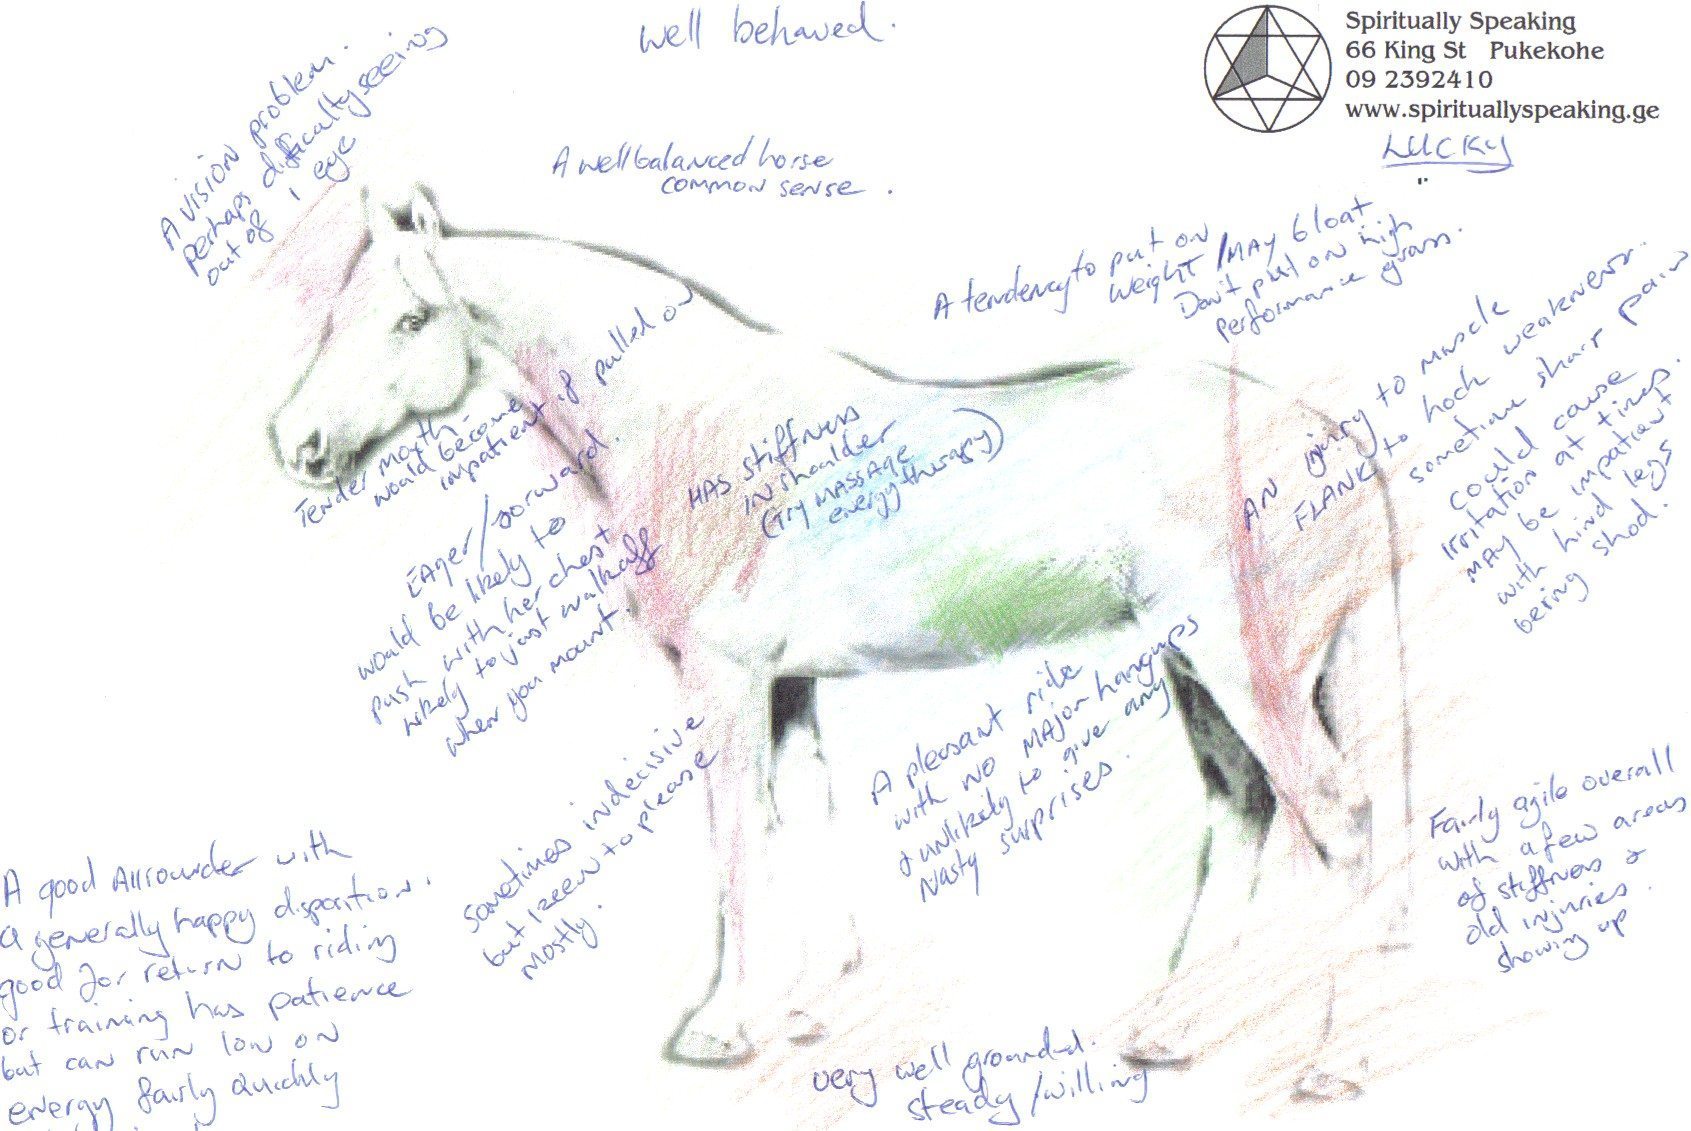 well behaved.
Spiritually Speaking
66 King St Pukekohe
09 2392410
www.spirituallyspeaking.ge
LUCKY
"
A vision problem.
perhaps difficulty seeing
out of 1 eye
A well balanced horse
common sense.
A tendency to put on
weight / MAY bloat
Don't put on high
performance grass.
AN injury to muscle
FLANK to hock weakness.
sometime sharp pain
could cause
irritation at times.
MAY be impatient
with hind legs
being shod.
Tender mouth -
would become
impatient if pulled on
HAS stiffness
in shoulder
(try MASSAGE
energy therapy)
EAger/forward.
would be likely to
push with her chest
likely to just walk off
when you mount.
sometimes indecisive
but keen to please
mostly.
A pleasant ride
with no MAjor hangups
& unlikely to give any
Nasty surprises.
Fairly agile overall
with a few areas
of stiffness &
old injuries
showing up.
A good Allrounder with
a generally happy disposition.
good for return to riding
or training has patience
but can run low on
energy fairly quickly
very well grounded.
steady /willing